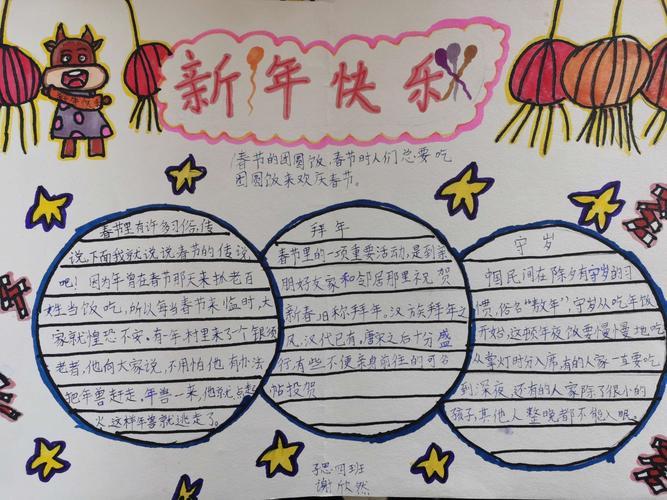 新年快乐
春节的团圆饭,春节时人们总要吃
团圆饭来欢庆春节。
春节里有许多习俗,传
说,下面我就说说春节的传说
吧!因为年曾在春节那天来抓老百
姓当饭吃,所以每当春节来临时,大
家就惶恐不安。有一年村里来了个银须
老者,他向大家说,不用怕他,有办法
把年兽赶走,年兽一来,他就点起
火,这样年兽就逃走了。
拜年
春节里的一项重要活动,是到亲
朋好友家和邻居那里祝贺
新春,旧称拜年。汉族拜年之
风,汉代已有。唐宋之后十分盛
行,有些不便亲身前往的可
帖投贺
守岁
中国民间在除夕有守岁的习
惯,俗名“熬年”,守岁从吃年饭
开始,这顿年夜饭要慢慢地吃
从掌灯时分入席,有的人家一直要吃
到深夜,还有的人家除了很小的
孩子其他人整晚都不能入眠
四班
谢欣然